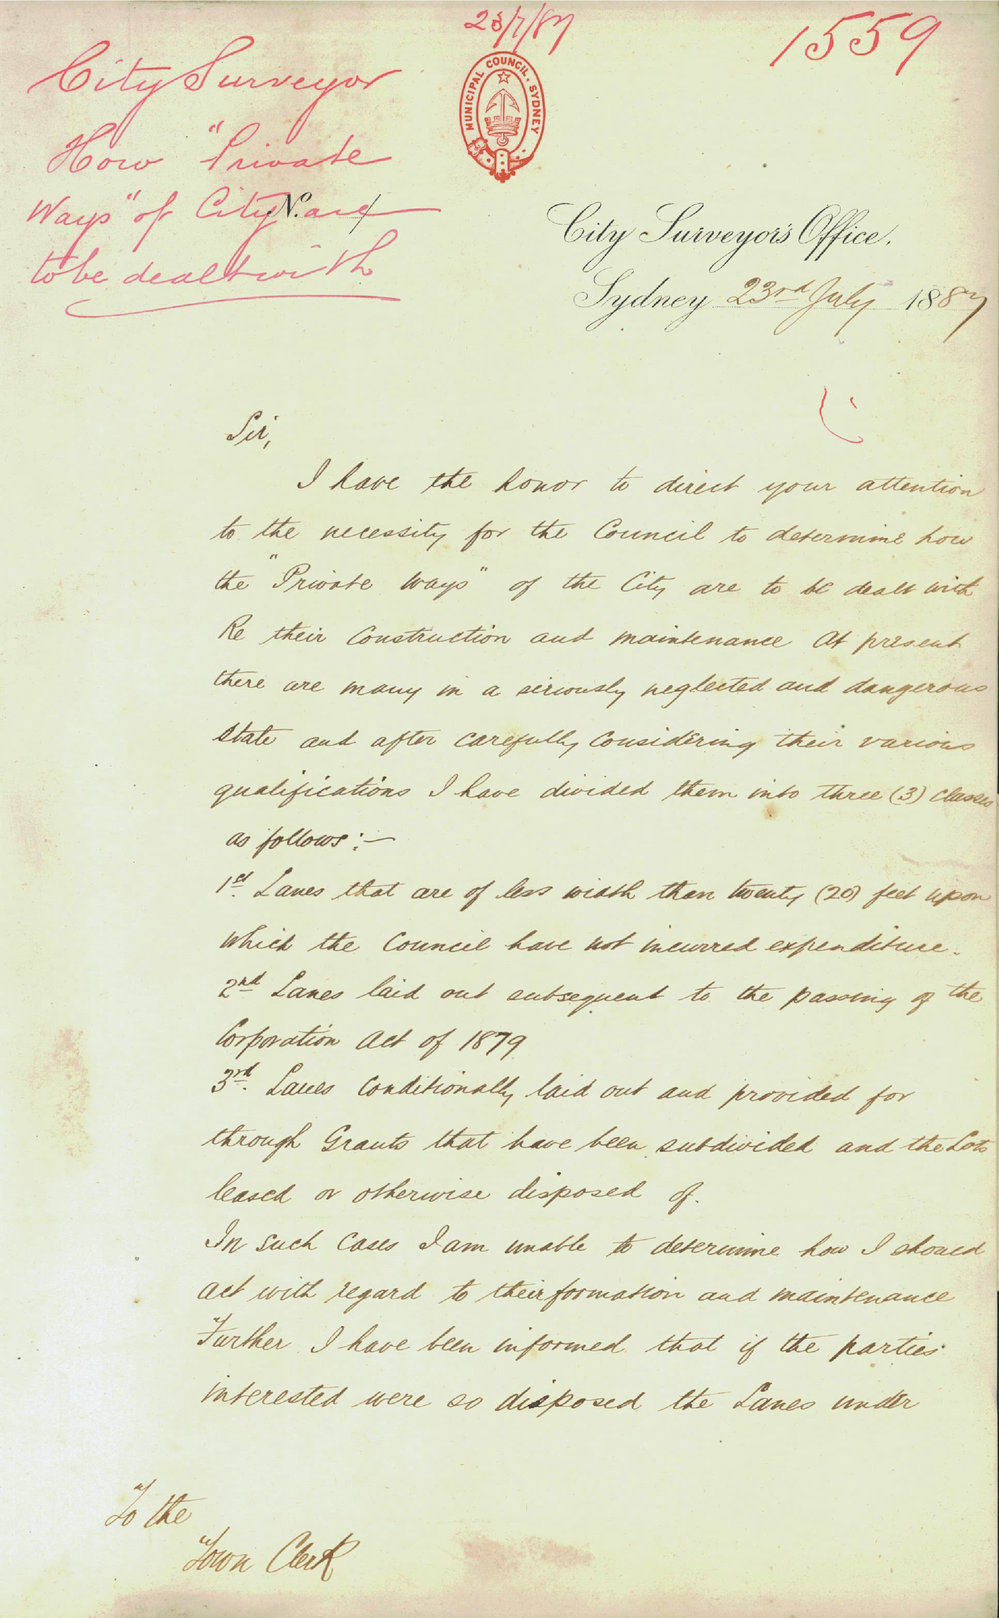 23/7/87
1559
City Surveyor
How "Private
Ways" of City are
to be dealt with
MUNICIPAL COUNCIL. SYDNEY
No.
City Surveyor's Office,
Sydney 23rd July 1887
Sir,
I have the honor to direct your attention
to the necessity for the Council to determine how
the "Private Ways" of the City are to be dealt with
Re their Construction and maintenance At present
there are many in a seriously neglected and dangerous
state and after carefully Considering their various
qualifications I have divided them into three (3) classes
as follows:—
1st. Lanes that are of less width than twenty (20) feet upon
which the Council have not incurred expenditure.
2nd Lanes laid out subsequent to the passing of the
Corporation Act of 1879
3rd. Lanes Conditionally laid out and provided for
through Grants that have been subdivided and the Lots
leased or otherwise disposed of.
In such Cases I am unable to determine how I should
act with regard to their formation and maintenance
Further I have been informed that if the parties
interested were so disposed the Lanes under
To the
Town Clerk